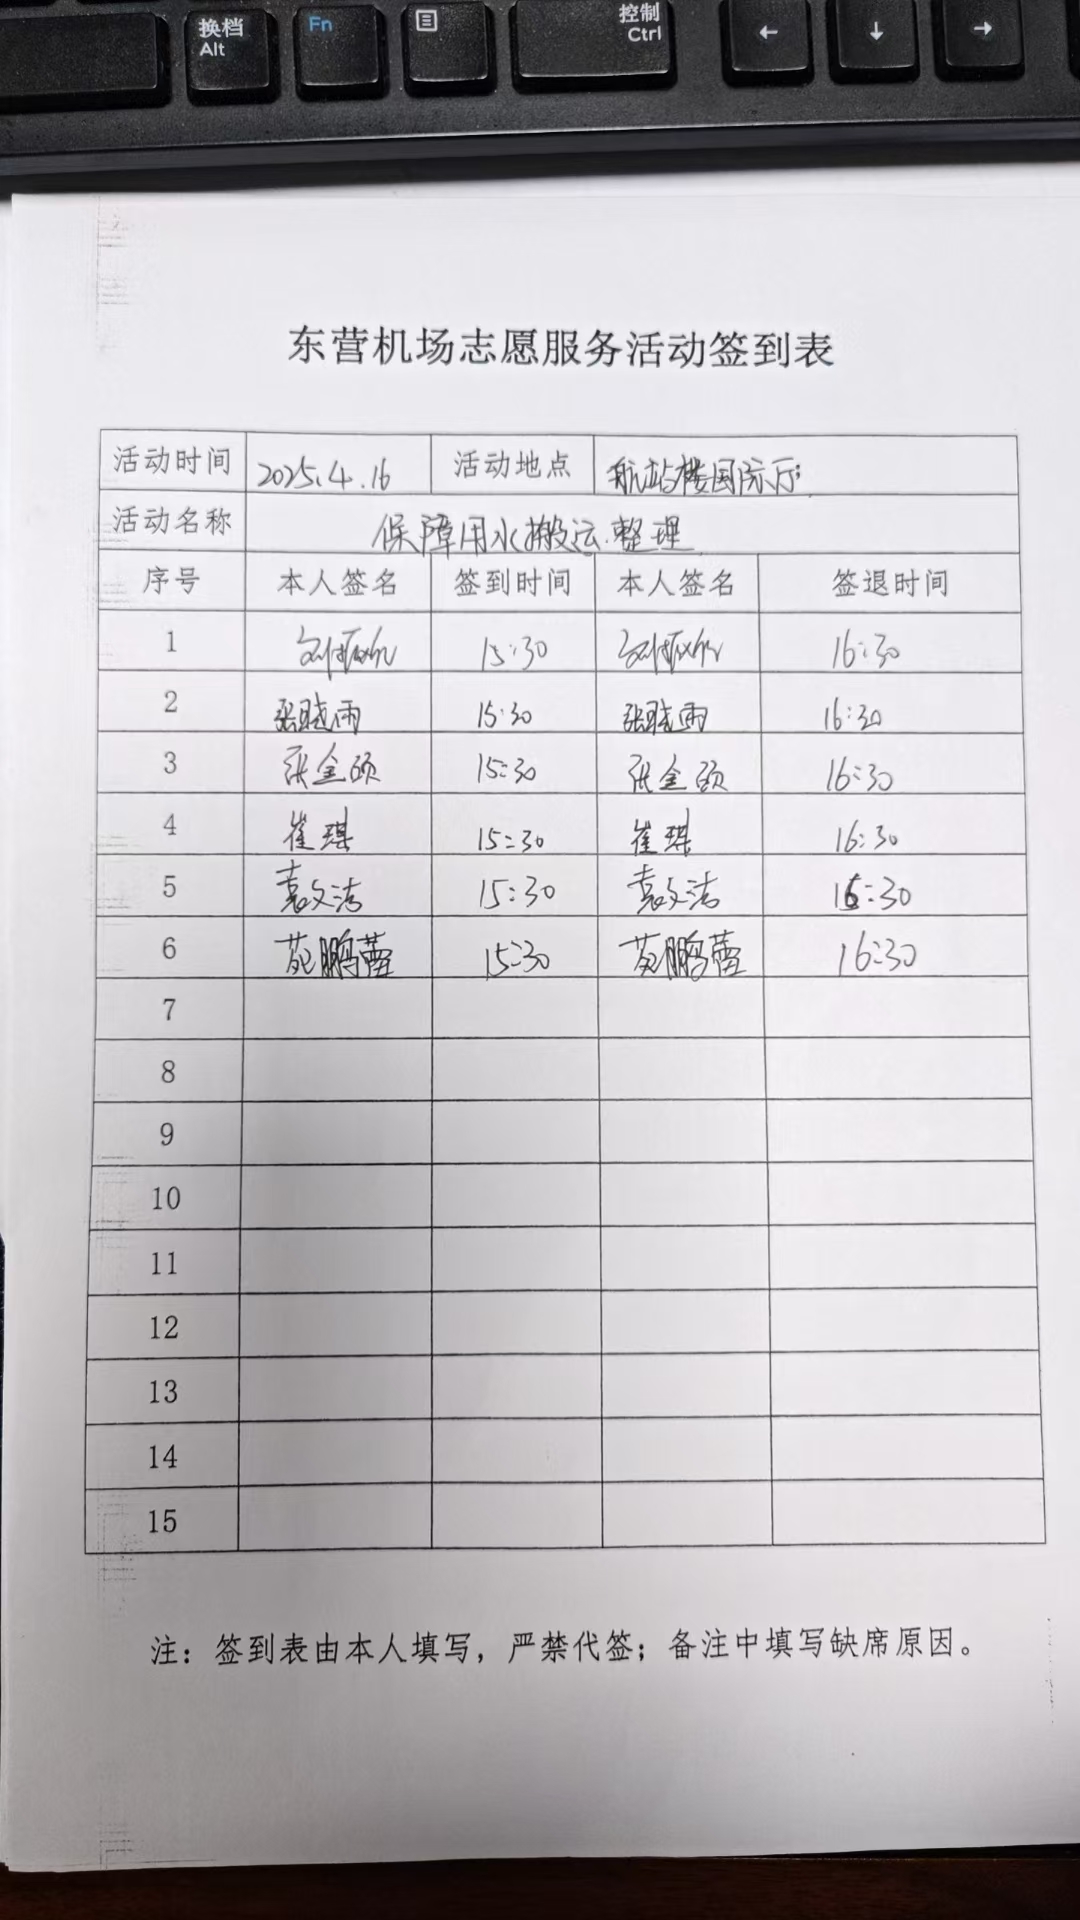 换档
Alt
Fn
控制
Ctrl
←
↓
→
东营机场志愿服务活动签到表
活动时间 2025.4.16 活动地点 航站楼国际厅
活动名称 保障用水搬运.整理
序号 本人签名 签到时间 本人签名 签退时间
1 15:30 16:30
2 张晓雨 15:30 张晓雨 16:30
3 张金硕 15:30 张金硕 16:30
4 崔琪 15:30 崔琪 16:30
5 袁文洁 15:30 袁文洁 16:30
6 苑鹏蕾 15:30 苑鹏蕾 16:30
7
8
9
10
11
12
13
14
15
注：签到表由本人填写，严禁代签；备注中填写缺席原因。